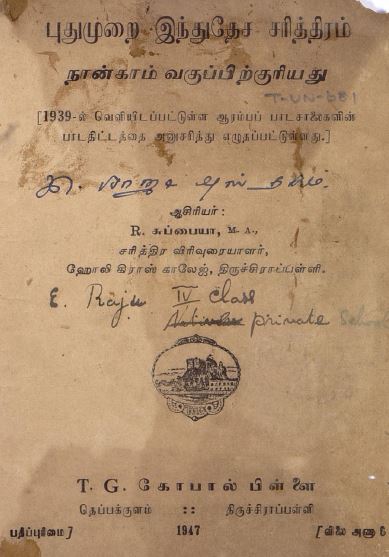 புதுமுறை இந்துதேச சரித்திரம்
நான்காம் வகுப்பிற்குரியது
T-UN-681
[1939-ல் வெளியிடப்பட்டுள்ள ஆரம்பப் பாடசாலைகளின்
பாதிட்டத்தை அனுசரித்து எழுதப்பட்டுள்ளது.]
ஆசிரியர் :
R. சுப்பையா, M. A.,
சரித்திர விரிவுரையாளர்,
ஹோலி கிராஸ் காலேஜ், திருச்சிராப்பள்ளி.
E. Raju IV Class
private School
T. G. கோபால் பிள்ளை
தெப்பக்குளம் :: திருச்சிராப்பள்ளி
பதிப்புரிமை] 1947 [விலை அணா 6